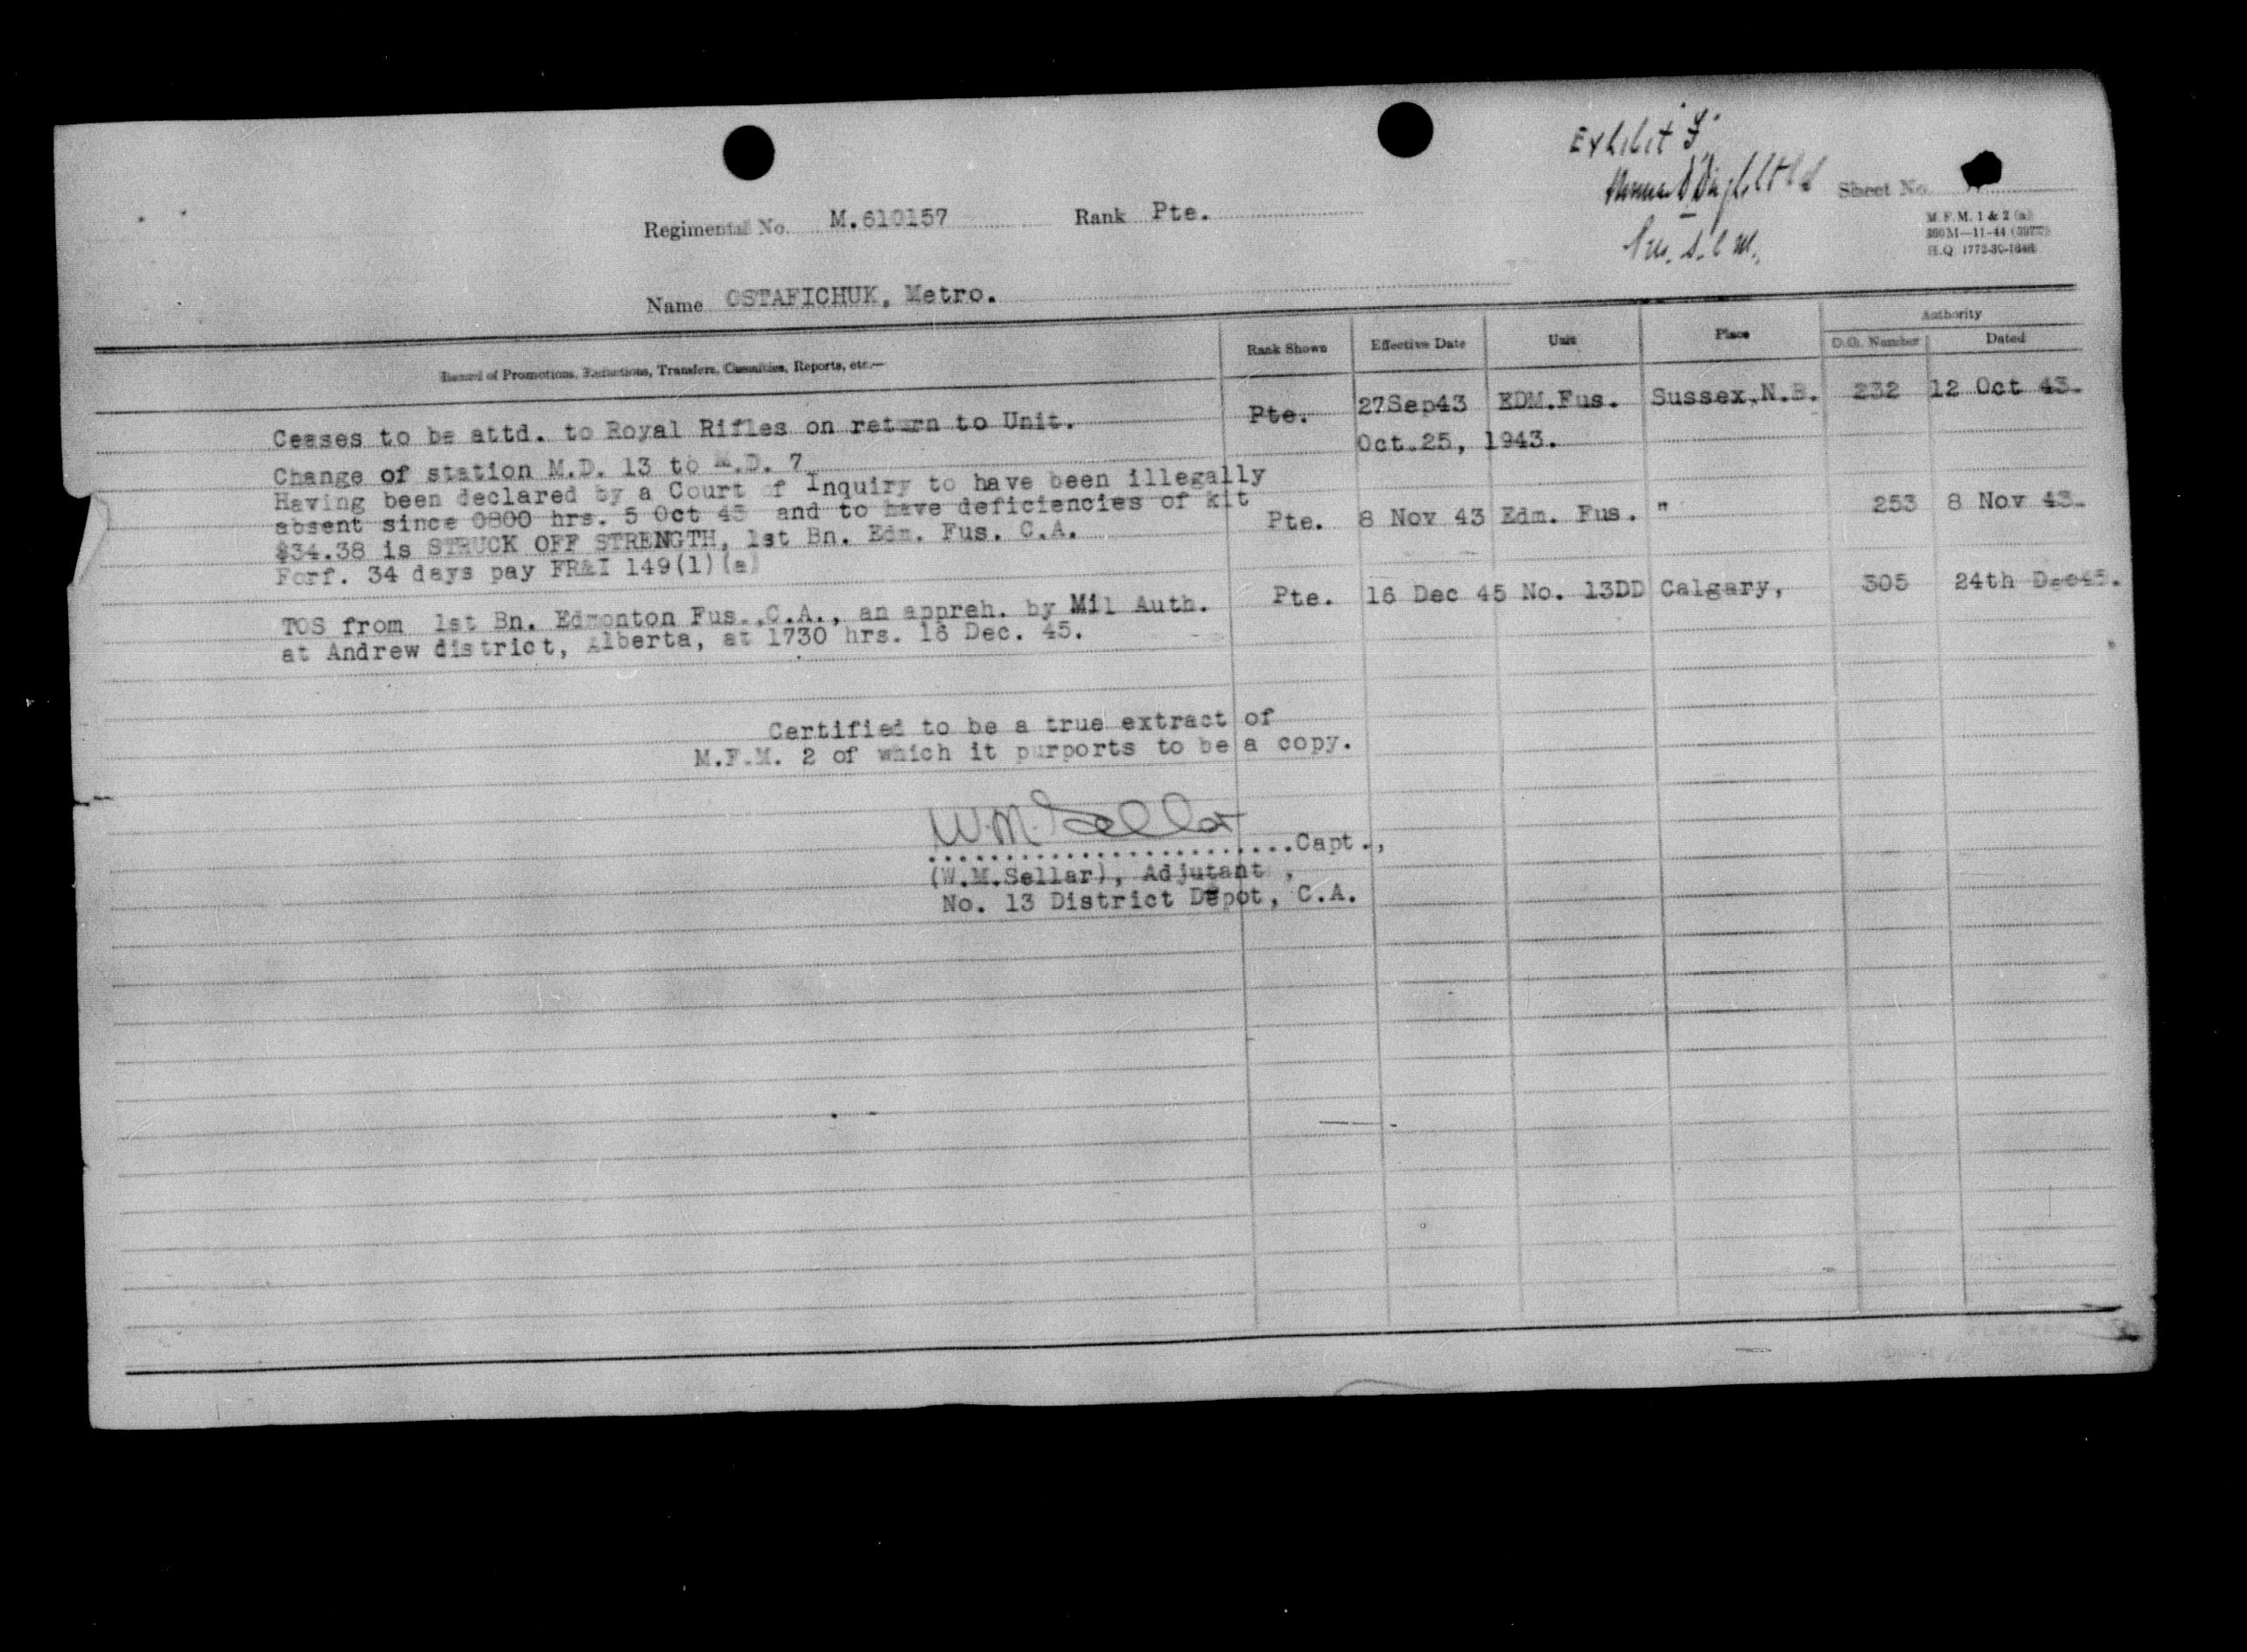 Exhibit "F"
Sheet No.
M.F.M. 1 & 2 (a)
Regimental No. M.610157 Rank Pte.
Name OSTAFICHUK, Metro.
Record of Promotions, Reductions, Transfers, Casualties, Reports, etc.— Rank Shown Effective Date Unit Place Authority
D.O. Number Dated
Ceases to be attd. to Royal Rifles on return to Unit. Pte. 27Sep43 EDM.Fus. Sussex,N.B. 232 12 Oct 43.
Change of station M.D. 13 to M.D. 7 Oct.25, 1943.
Having been declared by a Court of Inquiry to have been illegally
absent since 0800 hrs. 5 Oct 43 and to have deficiencies of kit
$34.38 is STRUCK OFF STRENGTH, 1st Bn. Edm. Fus. C.A. Pte. 8 Nov 43 Edm. Fus. " 253 8 Nov 43.
Forf. 34 days pay FR&I 149(1)(a)
TOS from 1st Bn. Edmonton Fus.,C.A., an appreh. by Mil Auth. Pte. 16 Dec 45 No. 13DD Calgary, 305 24th Dec45.
at Andrew district, Alberta, at 1730 hrs. 16 Dec. 45.
Certified to be a true extract of
M.F.M. 2 of which it purports to be a copy.
W.M. Sellar
........................Capt.,
(W.M.Sellar), Adjutant ,
No. 13 District Depot, C.A.